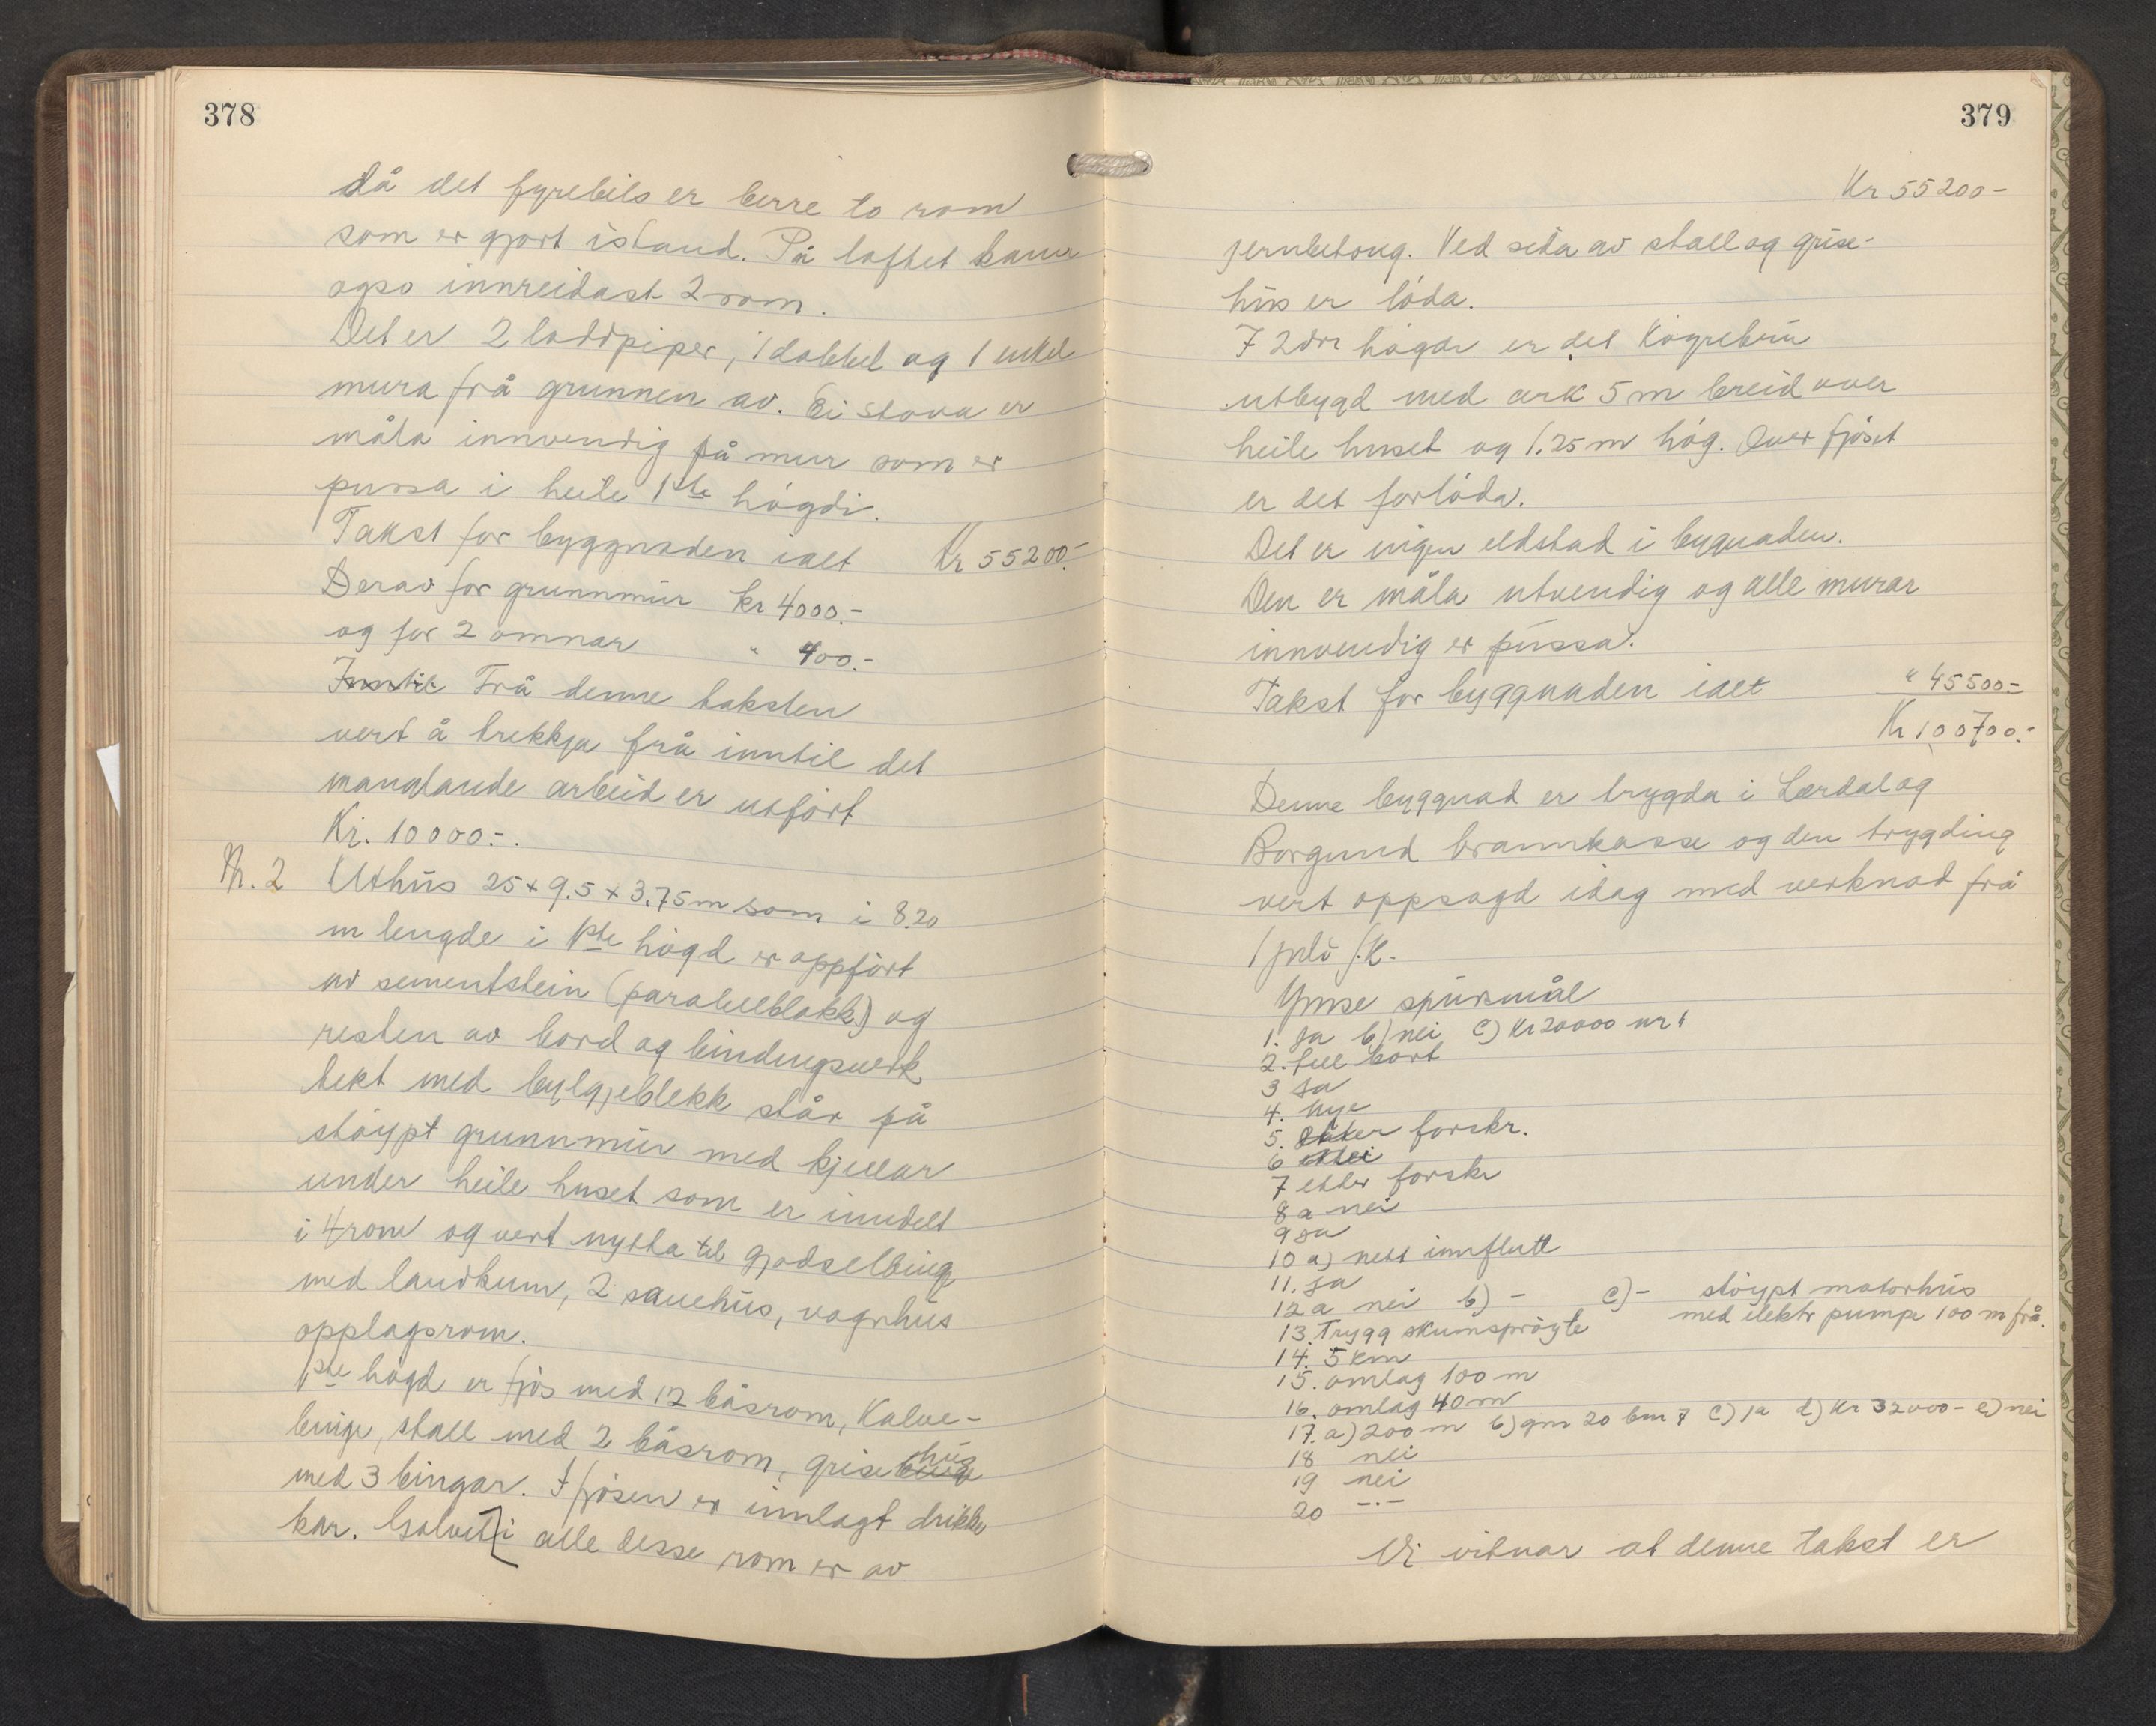 378
då det fyrebils er berre to rom
som er gjort istand. På loftet kann
ogso innreidast 2 rom.
Det er 2 loddpiper, 1 dobbel og 1 enkel
mura frå grunnen av. Ei stova er
måla innvendig på mur som er
pussa i heile 1ste högdi.
Takst for byggnaden ialt Kr 55200.-
Derav for grunnmur kr 4000.-
og for 2 omnar " 400.-
Inntil Frå denne taksten
vert å trekkja frå inntil det
manglande arbeid er utfört
Kr. 10000.-.
Nr. 2 Uthus 25 x 9.5 x 3.75 m som i 8.20
m lengde i 1ste högd er oppfört
av sementstein (parallellblokk) og
resten av bord og bindingsverk
tekt med bylgjeblekk står på
stöypt grunnmur med kjellar
under heile huset som er inndelt
i 4 rom og vert nytta til gjodselbinge
med landkum, 2 sauehus, vognhus
opplagsrom.
1ste högd er fjös med 12 båsrom, Kalve-
binge, stall med 2 båsrom, grisebinge hus
med 3 bingar. I fjösen er innlagt drikke
kar. Golvet i alle desse rom er av
379
Kr 55200-
jernbetong. Ved sida av stall og grise-
hus er löda.
I 2dre högde er det Köyrebru
utbygd med ark 5 m breid over
heile huset og 1.25 m hög. Over fjöset
er det forlöda.
Det er ingen eldstad i bygnaden.
Den er måla utvendig og alle murar
innvendig er pussa.
Takst for byggnaden ialt " 45500.-
Kr 100700.-
Denne byggnad er trygda i Lærdal og
Borgund brannkasse og den trygding
vert oppsagd idag med verknad frå
1 juli f.k.
Ymse spursmål
1. Ja b) nei c) Kr 20000 nr 1
2. fell bort
3 Ja
4. nye
5. etter forskr.
6 nei
7 etter forskr
8 a nei
9 Ja
10 a) nett innflutt
11. Ja
12 a nei b) - c) - stöypt motorhus
med elektr pumpe 100 m frå.
13. Trygg skumspröyte
14. 5 km
15. omlag 100 m
16. omlag 40 m
17. a) 200 m b) gm 20 bnr 7 c) ja d) Kr 32000- e) nei
18 nei
19 nei
20 -.-
Vi vitnar at denne takst er